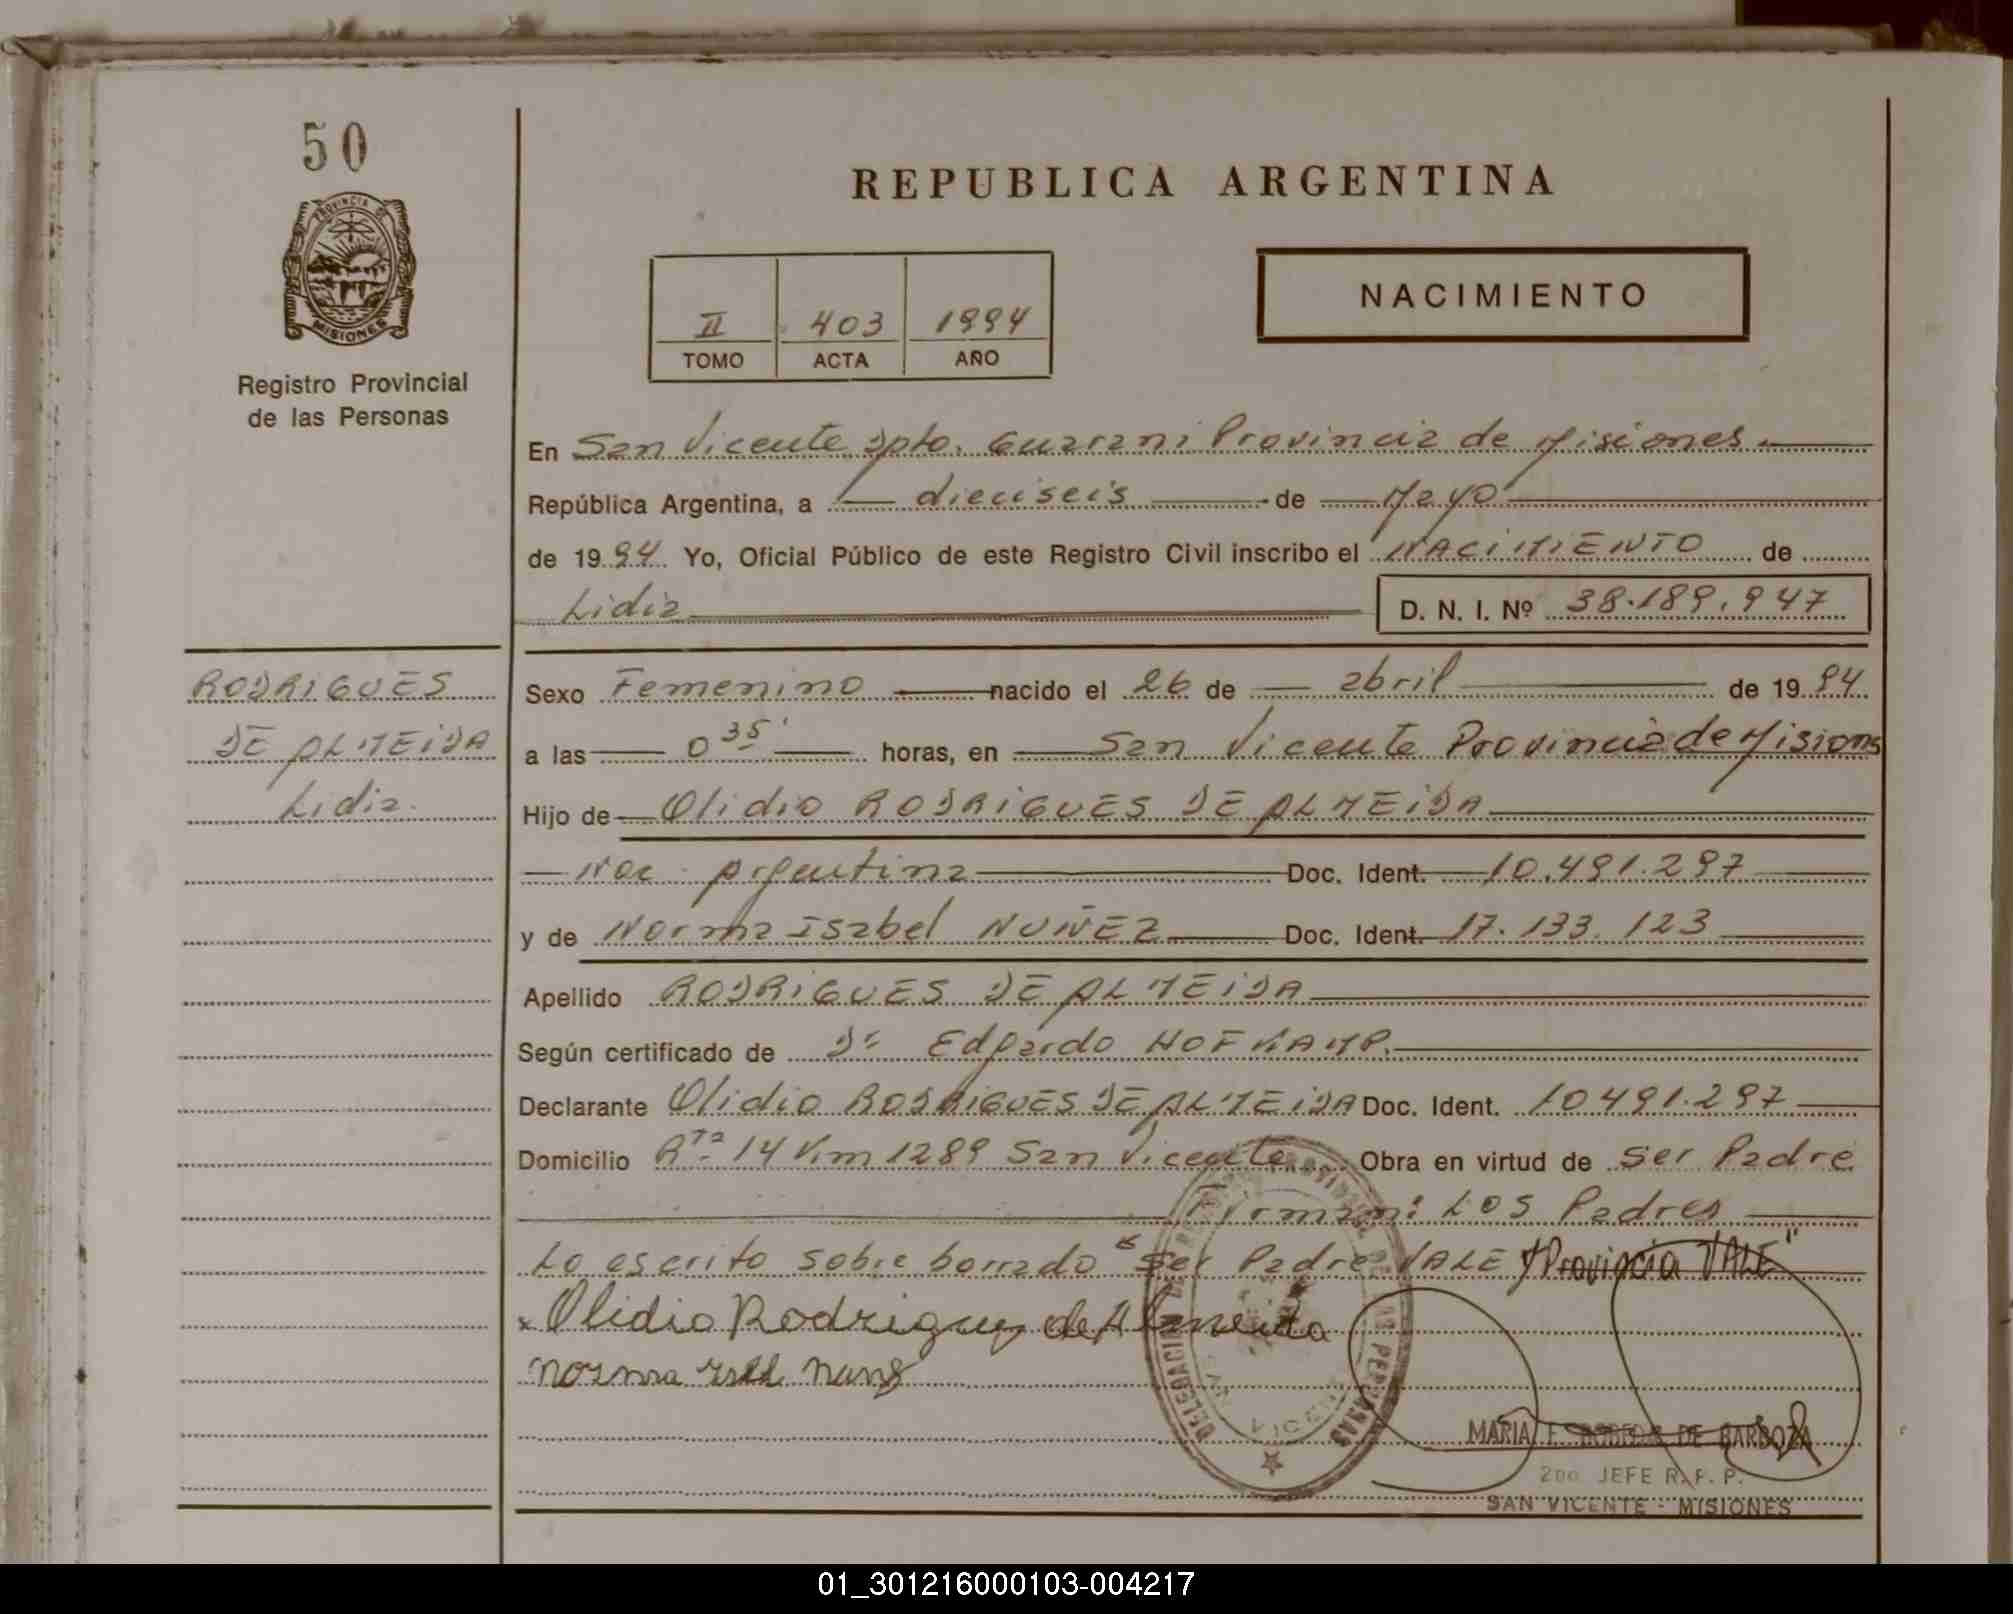 50
PROVINCIA DE
MISIONES
Registro Provincial
de las Personas
REPUBLICA ARGENTINA
II 403 1994
TOMO ACTA AÑO
NACIMIENTO
En San Vicente Dpto. Guarani Provincia de Misiones
República Argentina, a dieciseis de Mayo
de 1994 Yo, Oficial Público de este Registro Civil inscribo el NACIMIENTO de
Lidia D. N. I. Nº 38.189.947
RODRIGUES
DE ALMEIDA
Lidia.
Sexo Femenino nacido el 26 de abril de 1994
a las 0 35' horas, en San Vicente Provincia de Misiones
Hijo de Olidio RODRIGUES DE ALMEIDA
Nac. Argentina Doc. Ident. 10.491.297
y de Norma Isabel NUÑEZ Doc. Ident. 17.133.123
Apellido RODRIGUES DE ALMEIDA
Según certificado de Dr Edgardo HOFKAMP.
Declarante Olidio RODRIGUES DE ALMEIDA Doc. Ident. 10491.297
Domicilio Rta 14 Km 1289 San Vicente Obra en virtud de Ser Padre
Firman: Los Padres
Lo escrito sobre borrado "Ser Padre VALE y Provincia VALE"
x Olidio Rodrigues de Almeida
Norma
DELEGACION
DE LAS PERSONAS
SAN VICENTE
MARIA F. DE BARBOZA
2do. JEFE R. P. P.
SAN VICENTE - MISIONES
01_301216000103-004217